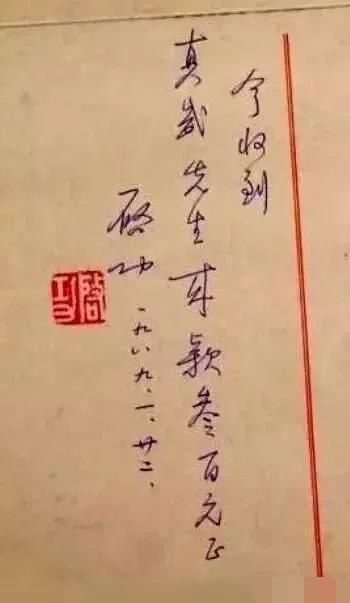 今收到
真先生款叁百元正
啓功 一九八九、一、廿二、
啓功